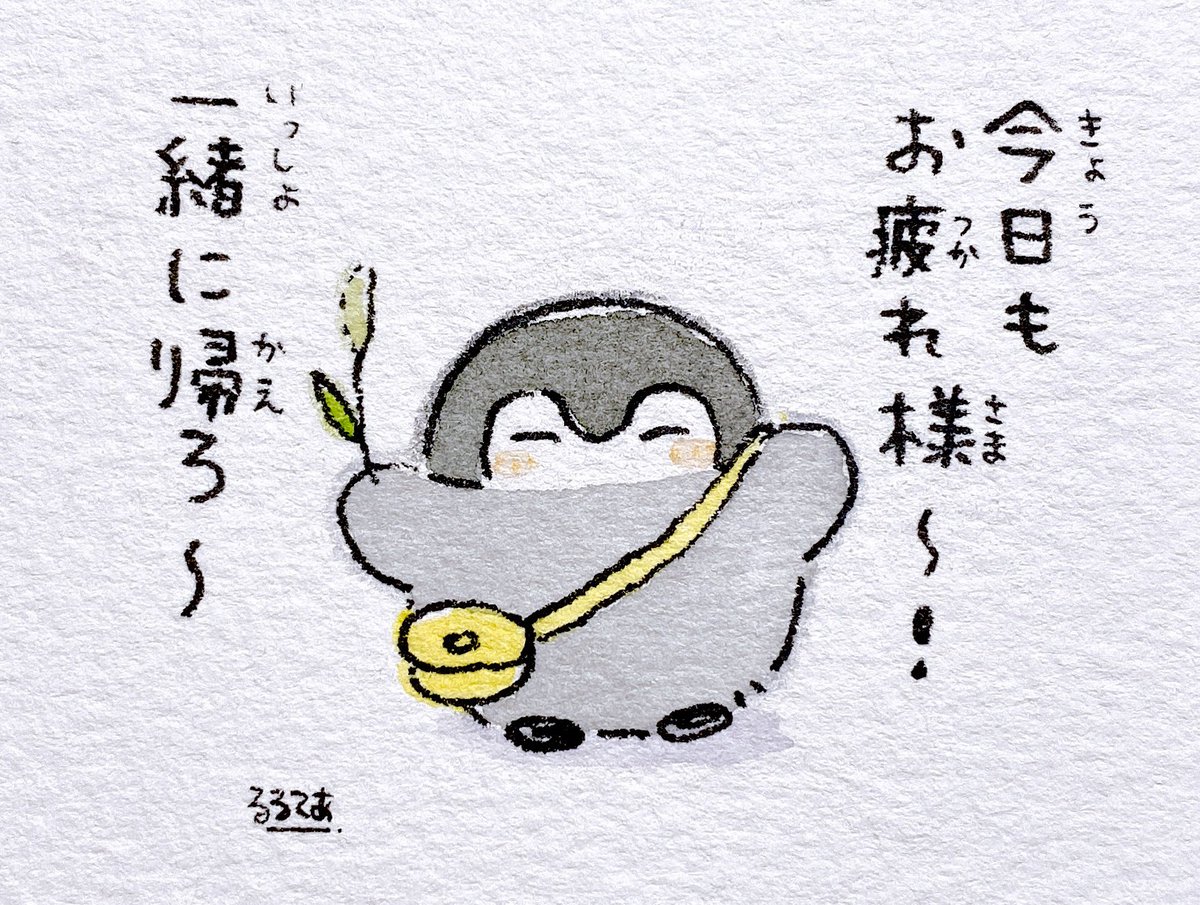 今日も
お疲れ様〜!
一緒に帰ろ〜
きょう
つか
さま
いっしょ
かえ
るるてあ